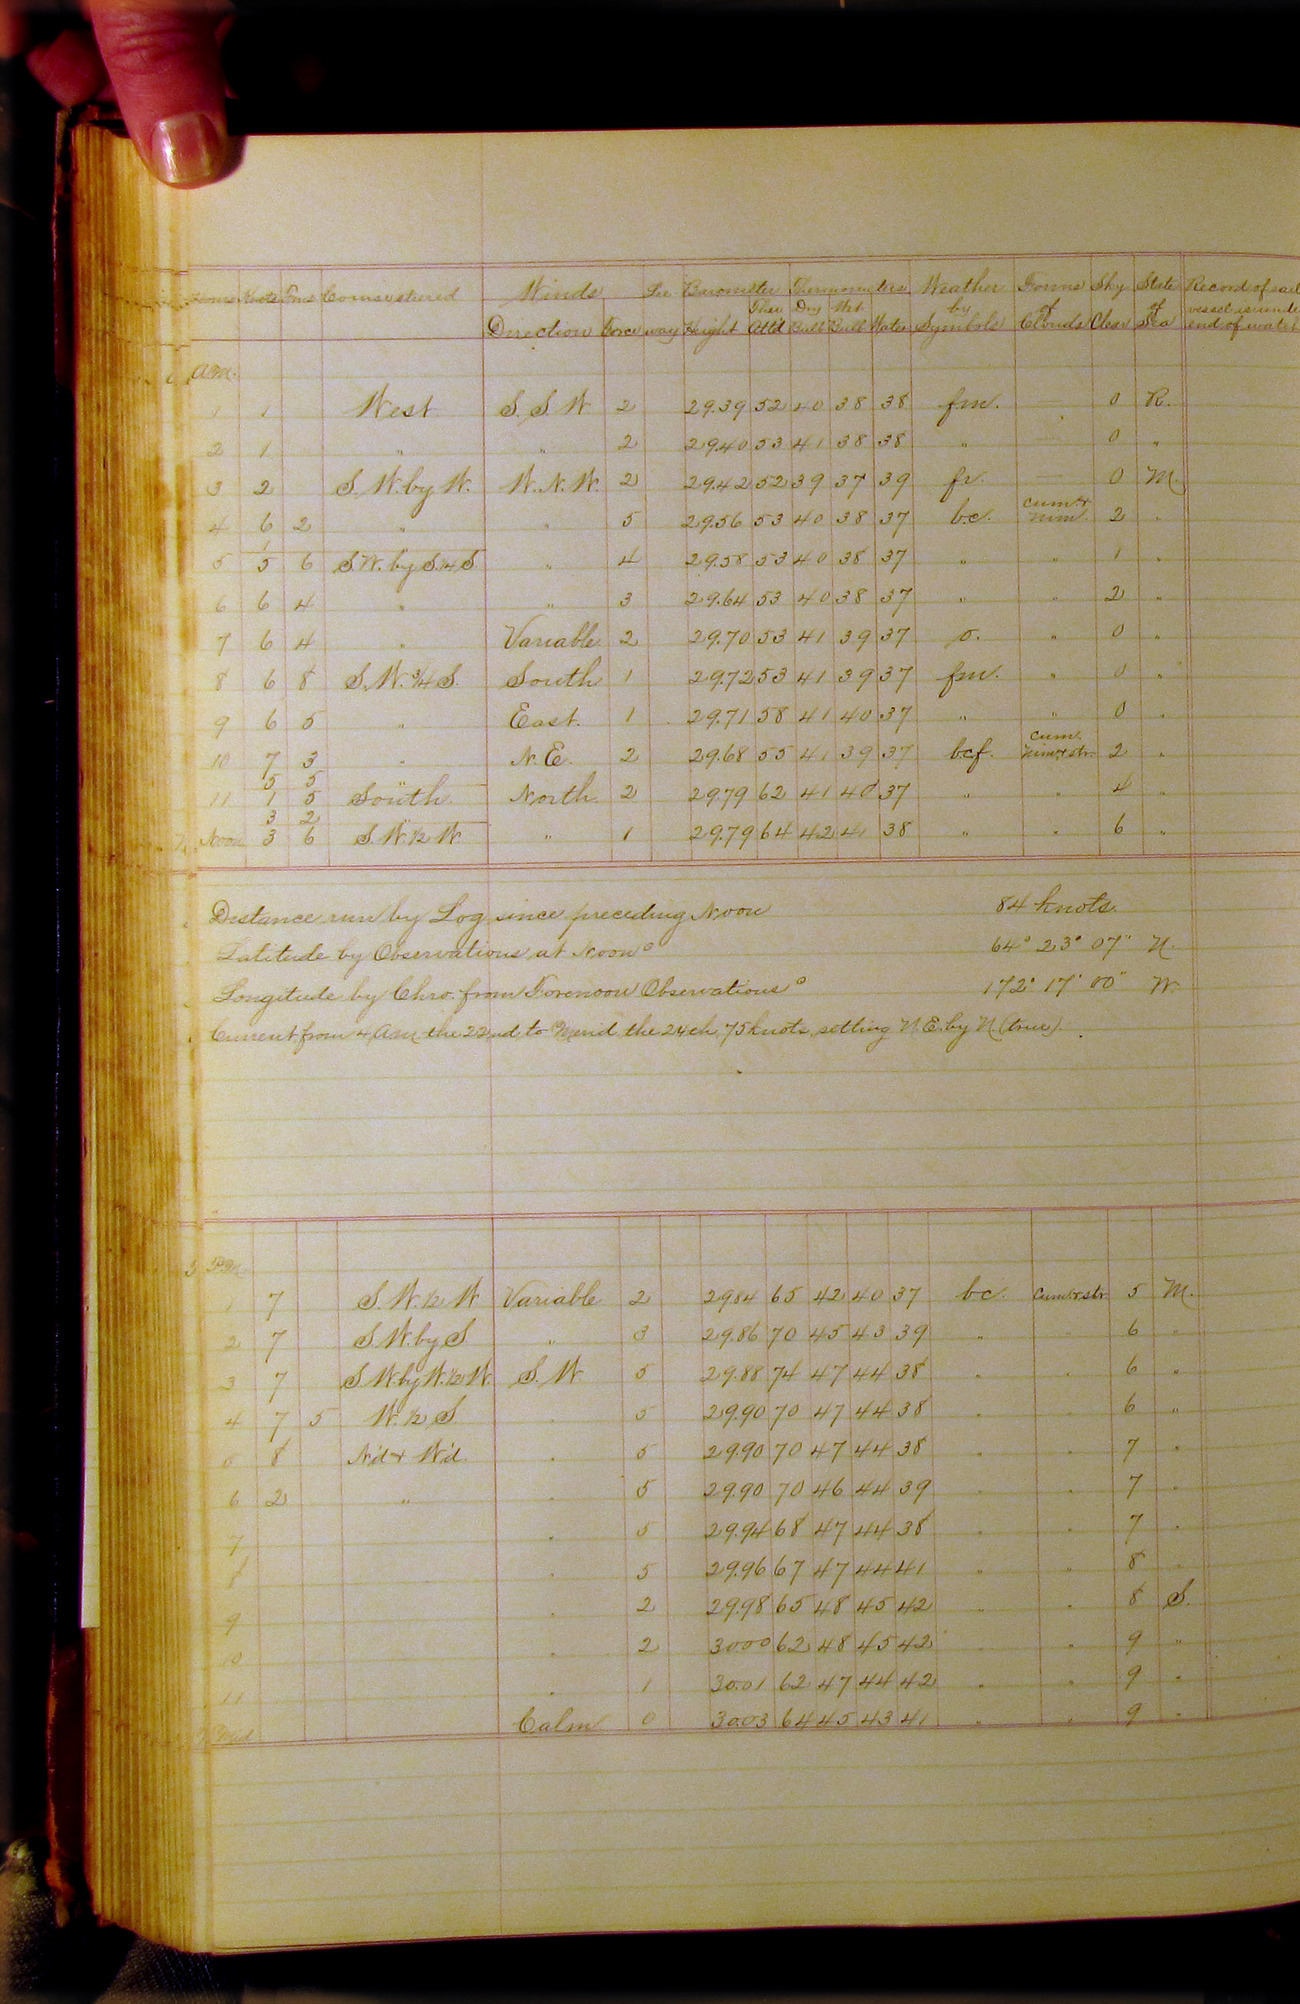 Hours Knots Fms Courses steered Winds Lee Barometer Thermometers Weather Forms Sky State Record of sail
Ther Dry Wet by of of vessel is unde
Direction Force way Height Att'd Bulb Bulb Water Symbols Clouds Clear Sea end of watch
A.M.
1 1 West S. S. W 2 29.39 52 40 38 38 fm. — 0 R.
2 1 " " 2 29.40 53 41 38 38 " — 0 "
3 2 S. W. by W. W. N. W. 2 29.42 52 39 37 39 fr. — 0 M.
4 6 2 " " 5 29.56 53 40 38 37 b.c. cum. & nim. 2 "
5 5 6 S. W. by S. 1/4 S " 4 29.58 53 40 38 37 " " 1 "
6 6 4 " " 3 29.64 53 40 38 37 " " 2 "
7 6 4 " Variable 2 29.70 53 41 39 37 o. " 0 "
8 6 8 S. W. 3/4 S. South 1 29.72 53 41 39 37 fm. " 0 "
9 6 5 " East. 1 29.71 58 41 40 37 " " 0 "
cum.
10 7 3 " N. E. 2 29.68 55 41 39 37 bcf. nim. & str. 2 "
5 5
11 1 5 South North 2 29.79 62 41 40 37 " " 4 "
3 2
Noon 3 6 S. W. 1/2 W " 1 29.79 64 42 41 38 " " 6 "
Distance run by Log since preceding Noon 84 knots.
Latitude by Observations at Noon 64° 23' 07" N.
Longitude by Chro. from Forenoon Observations 172° 17' 00" W.
Current from 4 A.M. the 22nd to Merid. the 24th, 75 knots, setting N. E. by N (true).
P.M.
1 7 S. W. 1/2 W Variable 2 29.84 65 42 40 37 bc. cum. & str. 5 M.
2 7 S. W. by S " 3 29.86 70 45 43 39 " " 6 "
3 7 S W. by W. 1/2 W. S. W 5 29.88 74 47 44 38 " " 6 "
4 7 5 W. 1/2 S " 5 29.90 70 47 44 38 " " 6 "
5 8 N'd & W'd " 5 29.90 70 47 44 38 " " 7 "
6 2 " " 5 29.90 70 46 44 39 " " 7 "
7 " 5 29.94 68 47 44 38 " " 7 "
8 " 5 29.96 67 47 44 41 " " 8 "
9 " 2 29.98 65 48 45 42 " " 8 S.
10 " 2 30.00 62 48 45 42 " " 9 "
11 " 1 30.01 62 47 44 42 " " 9 "
Mid Calm 0 30.03 64 45 43 41 " " 9 "